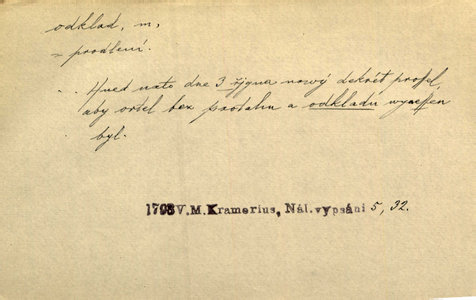 odklad, m,
= prodlení.
.. Hned nato dne 3 října nový dekrét prošel,
aby ortel bez průtahu a odkladu vynešen
byl.
1793 V.M.Kramerius, Nál.vypsání 5, 32.